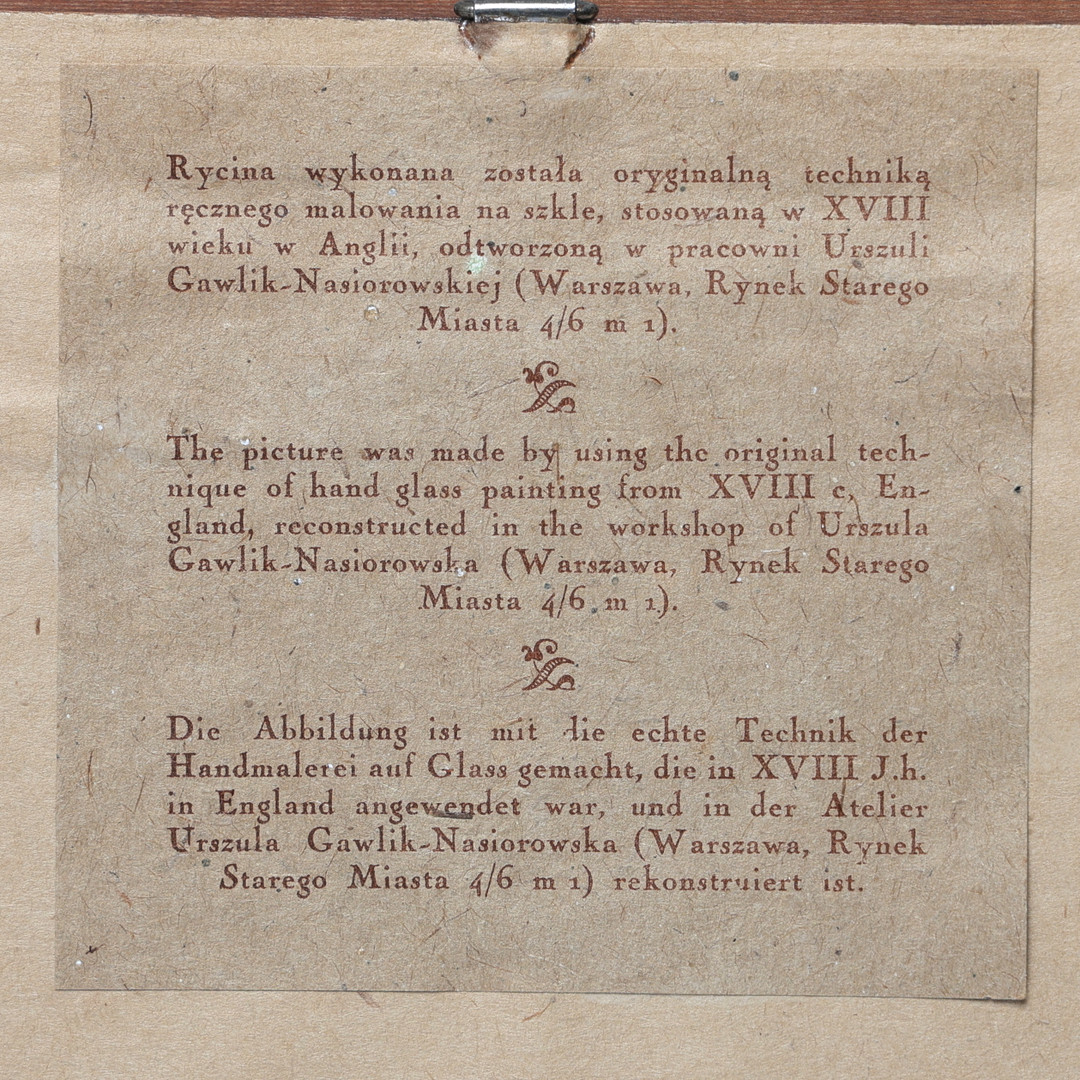 Rycina wykonana została oryginalną techniką
ręcznego malowania na szkle, stosowaną w XVIII
wieku w Anglii, odtworzoną w pracowni Urszuli
Gawlik-Nasiorowskiej (Warszawa, Rynek Starego
Miasta 4/6 m 1).
The picture was made by using the original tech-
nique of hand glass painting from XVIII c, En-
gland, reconstructed in the workshop of Urszula
Gawlik-Nasiorowska (Warszawa, Rynek Starego
Miasta 4/6 m 1).
Die Abbildung ist mit die echte Technik der
Handmalerei auf Glass gemacht, die in XVIII J.h.
in England angewendet war, und in der Atelier
Urszula Gawlik-Nasiorowska (Warszawa, Rynek
Starego Miasta 4/6 m 1) rekonstruiert ist.